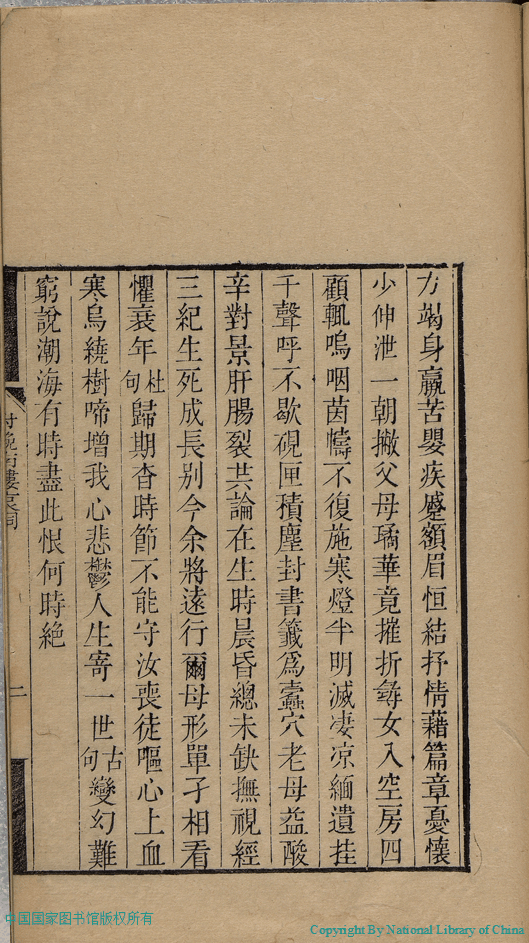 力竭身羸苦嬰疾蹙額眉恒結抒情藉篇章憂懐
少伸泄一朝撇父母璚華竟摧折尋女入空房四
顧輒嗚咽茵幬不復施寒燈半明滅淒凉緬遺挂
千聲呼不歇硯匣積塵封書籤為蠹穴老母益酸
辛對景肝腸裂共論在生時晨昏總未缺撫視經
三紀生死成長别今余將遠行爾母形單孑相看
懼衰年杜句歸期杳時節不能守汝喪徒嘔心上血
寒烏繞樹啼增我心悲鬱人生寄一世古句變幻難
窮說潮海有時盡此恨何時絶
二
中国国家图书馆版权所有
Copyright By National Library of China